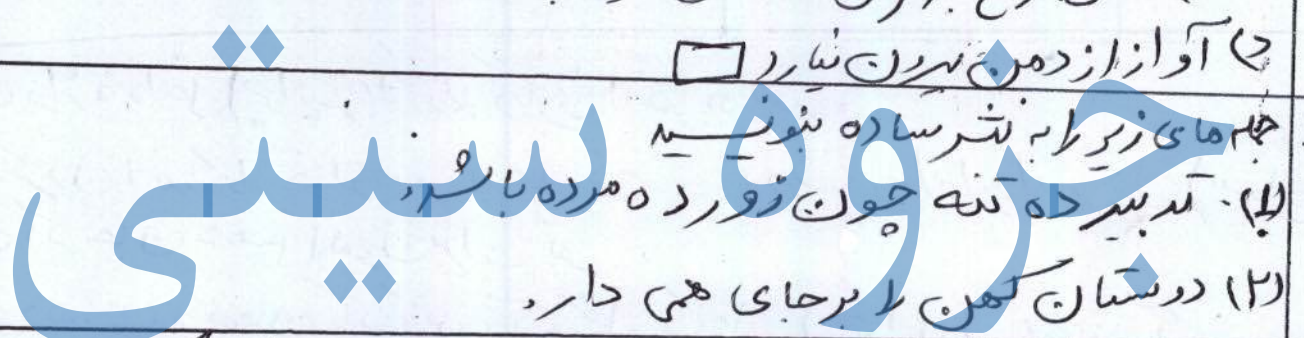 د) آواز از دهن بیرون نیارد
جمله های زیر را به نثر ساده بنویسید
(۱). تدبیر ده تنه چون زور ده مرده باشد.
(۲) دوستان کهن را برجای همی دار.
جزوه سیتی